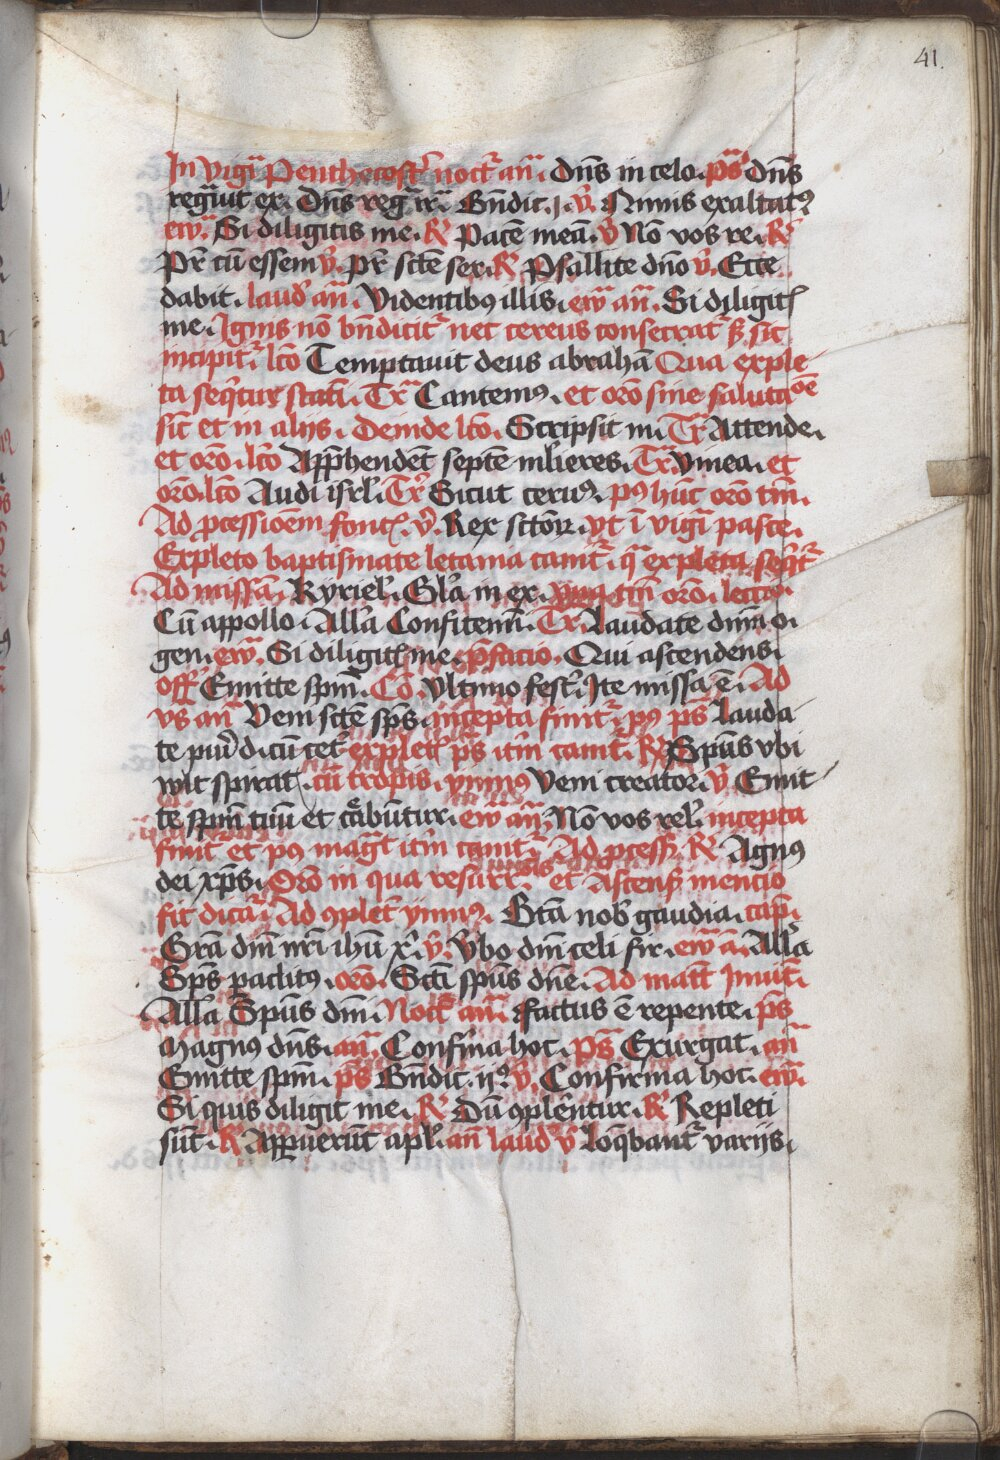 41.
In vigi̅ Penthecost̕ noct̕ an̅. Dn̅s in celo. ps̅ Dn̅s
regn̅uit ex. Dn̅s reg̅ ir̅. Bn̅dic. j. v̕. Nimis exaltatꝰ
ew̅. Si diligitis me. R̕ Pace̅ mea̅. v̕ No̅ vos re. R̕
Pr̅ cu̅ essem v̕. pr̅ scte̅ ser. R̕ Psallite dn̅o v̕. Ecce
dabit. laud̕ an̅. Videntibꝯ illis. ew̅ an̅. Si diligit̕
me. Ignis no̅ bn̅dicit̕ nec cereus consecrat̕ sꝫ sic
incipit̕ lc̅o Temptavit deus abraha̅ Qua exple
ta seq̅tur stati̅. Tr̅ Cantemꝰ. et or̅o sine salutac̅o̅e
sic̅ et in alijs. Deinde lc̅o. Scripsit m. Tr̅ Attende.
et or̅o. lc̅o App̅hendent septe̅ ml̕ieres. Tr̅. vinea. et
or̅o. lc̅o Audi isrl̕. Tr̅ Sicut cervꝰ. pꝰ hu̅c or̅o tm̅.
Ad ꝓcessio̅em font̕. v̕. Rex sc̅tor̅. vt i̅ vigi̅ pasce.
Expleto baptismate letania canit̕. q̅ expleta seq̅t̕
Ad missa̅. Kyriel̕. Gl̅a in ex. tm̅ or̅o. lectio
Cu̅ appollo. All̅a Confitemi̅. Tr̅. Laudate dn̅m o.
gen. ew̅. Si diligit̕ me. p̅facio. Qui ascendens.
off̕ Emitte spm̅. Co̅. vltimo fest̕. Ite missa e̅. Ad
vs̅ an̅ Veni scte̅ sps̅. incepta finit̕. pꝰ ps̅ Lauda
te pu̅ d. cu̅ cet̕ explet̕ ps̅ it̅m canit̕. R̕ Spu̅s vbi
wlt spirat. cu̅ tropis. ymnꝰ Veni creator. v̕. Emit
te spm̅ tuu̅ et c̅abu̅tur. ew an̅. No̅ vos rel̕. incepta
finit̕ et pꝰ mag̅t it̅m canit̕. Ad ꝓcess̕. R̕ Agnꝰ
dei xp̅s. Or̅o in qua resurr̕. et Ascens̕ mencio
fit dicit̕. Ad ꝯplet̕ ymnꝰ. Bt̅a nob̕ gaudia. cap̅.
Gr̅a dn̅i nr̅i ihu̅ x̕. v̕. v̕bo dn̅i celi fir. ew̅ a̅. All̅a
Sps̅ paclitꝰ. or̅o. Sct̅i spu̅s dn̅e. Ad matt̅ Inuit̅.
All̅a Spu̅s dn̅i. Noct̅ an̅. factus e̅ repente. ps̅
Magnꝰ dn̅s. an̅. Confirma hoc. ps̅ Exurgat. an̅
Emitte spm̅. ps̅ Bn̅dic. ijꝰ. v̕. Confirma hoc. ew̅.
Si quis diligit me. R̕. Du̅ ꝯple̅ntur. R̕ Repleti
su̅t. R̕ Apparueru̅t apl̕. an̅ laud̕ v̕ loq̅bant̕ varijs.